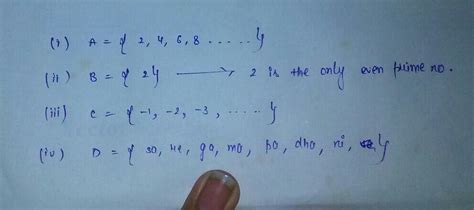 (i) A = { 2, 4, 6, 8 ..... }
(ii) B = { 2 } → 2 is the only even prime no.
(iii) C = { -1, -2, -3, ..... }
(iv) D = { so, re, ga, mo, po, dho, ni, }